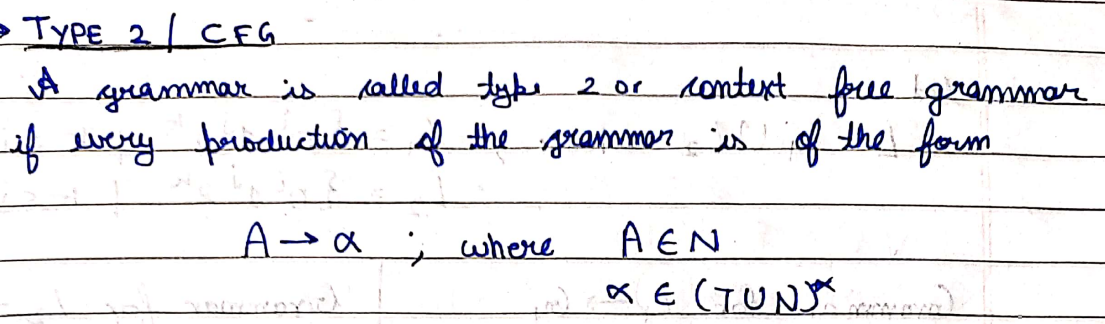 TYPE 2 | CFG
A grammar is called type 2 or context free grammar
if every production of the grammar is of the form
A → α ; where A ∈ N
α ∈ (T ∪ N)*